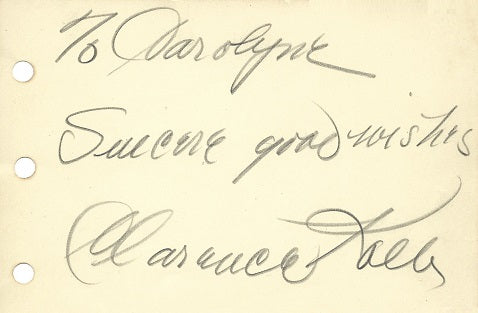 To Carolyne
Sincere good wishes
Clarence Kolb